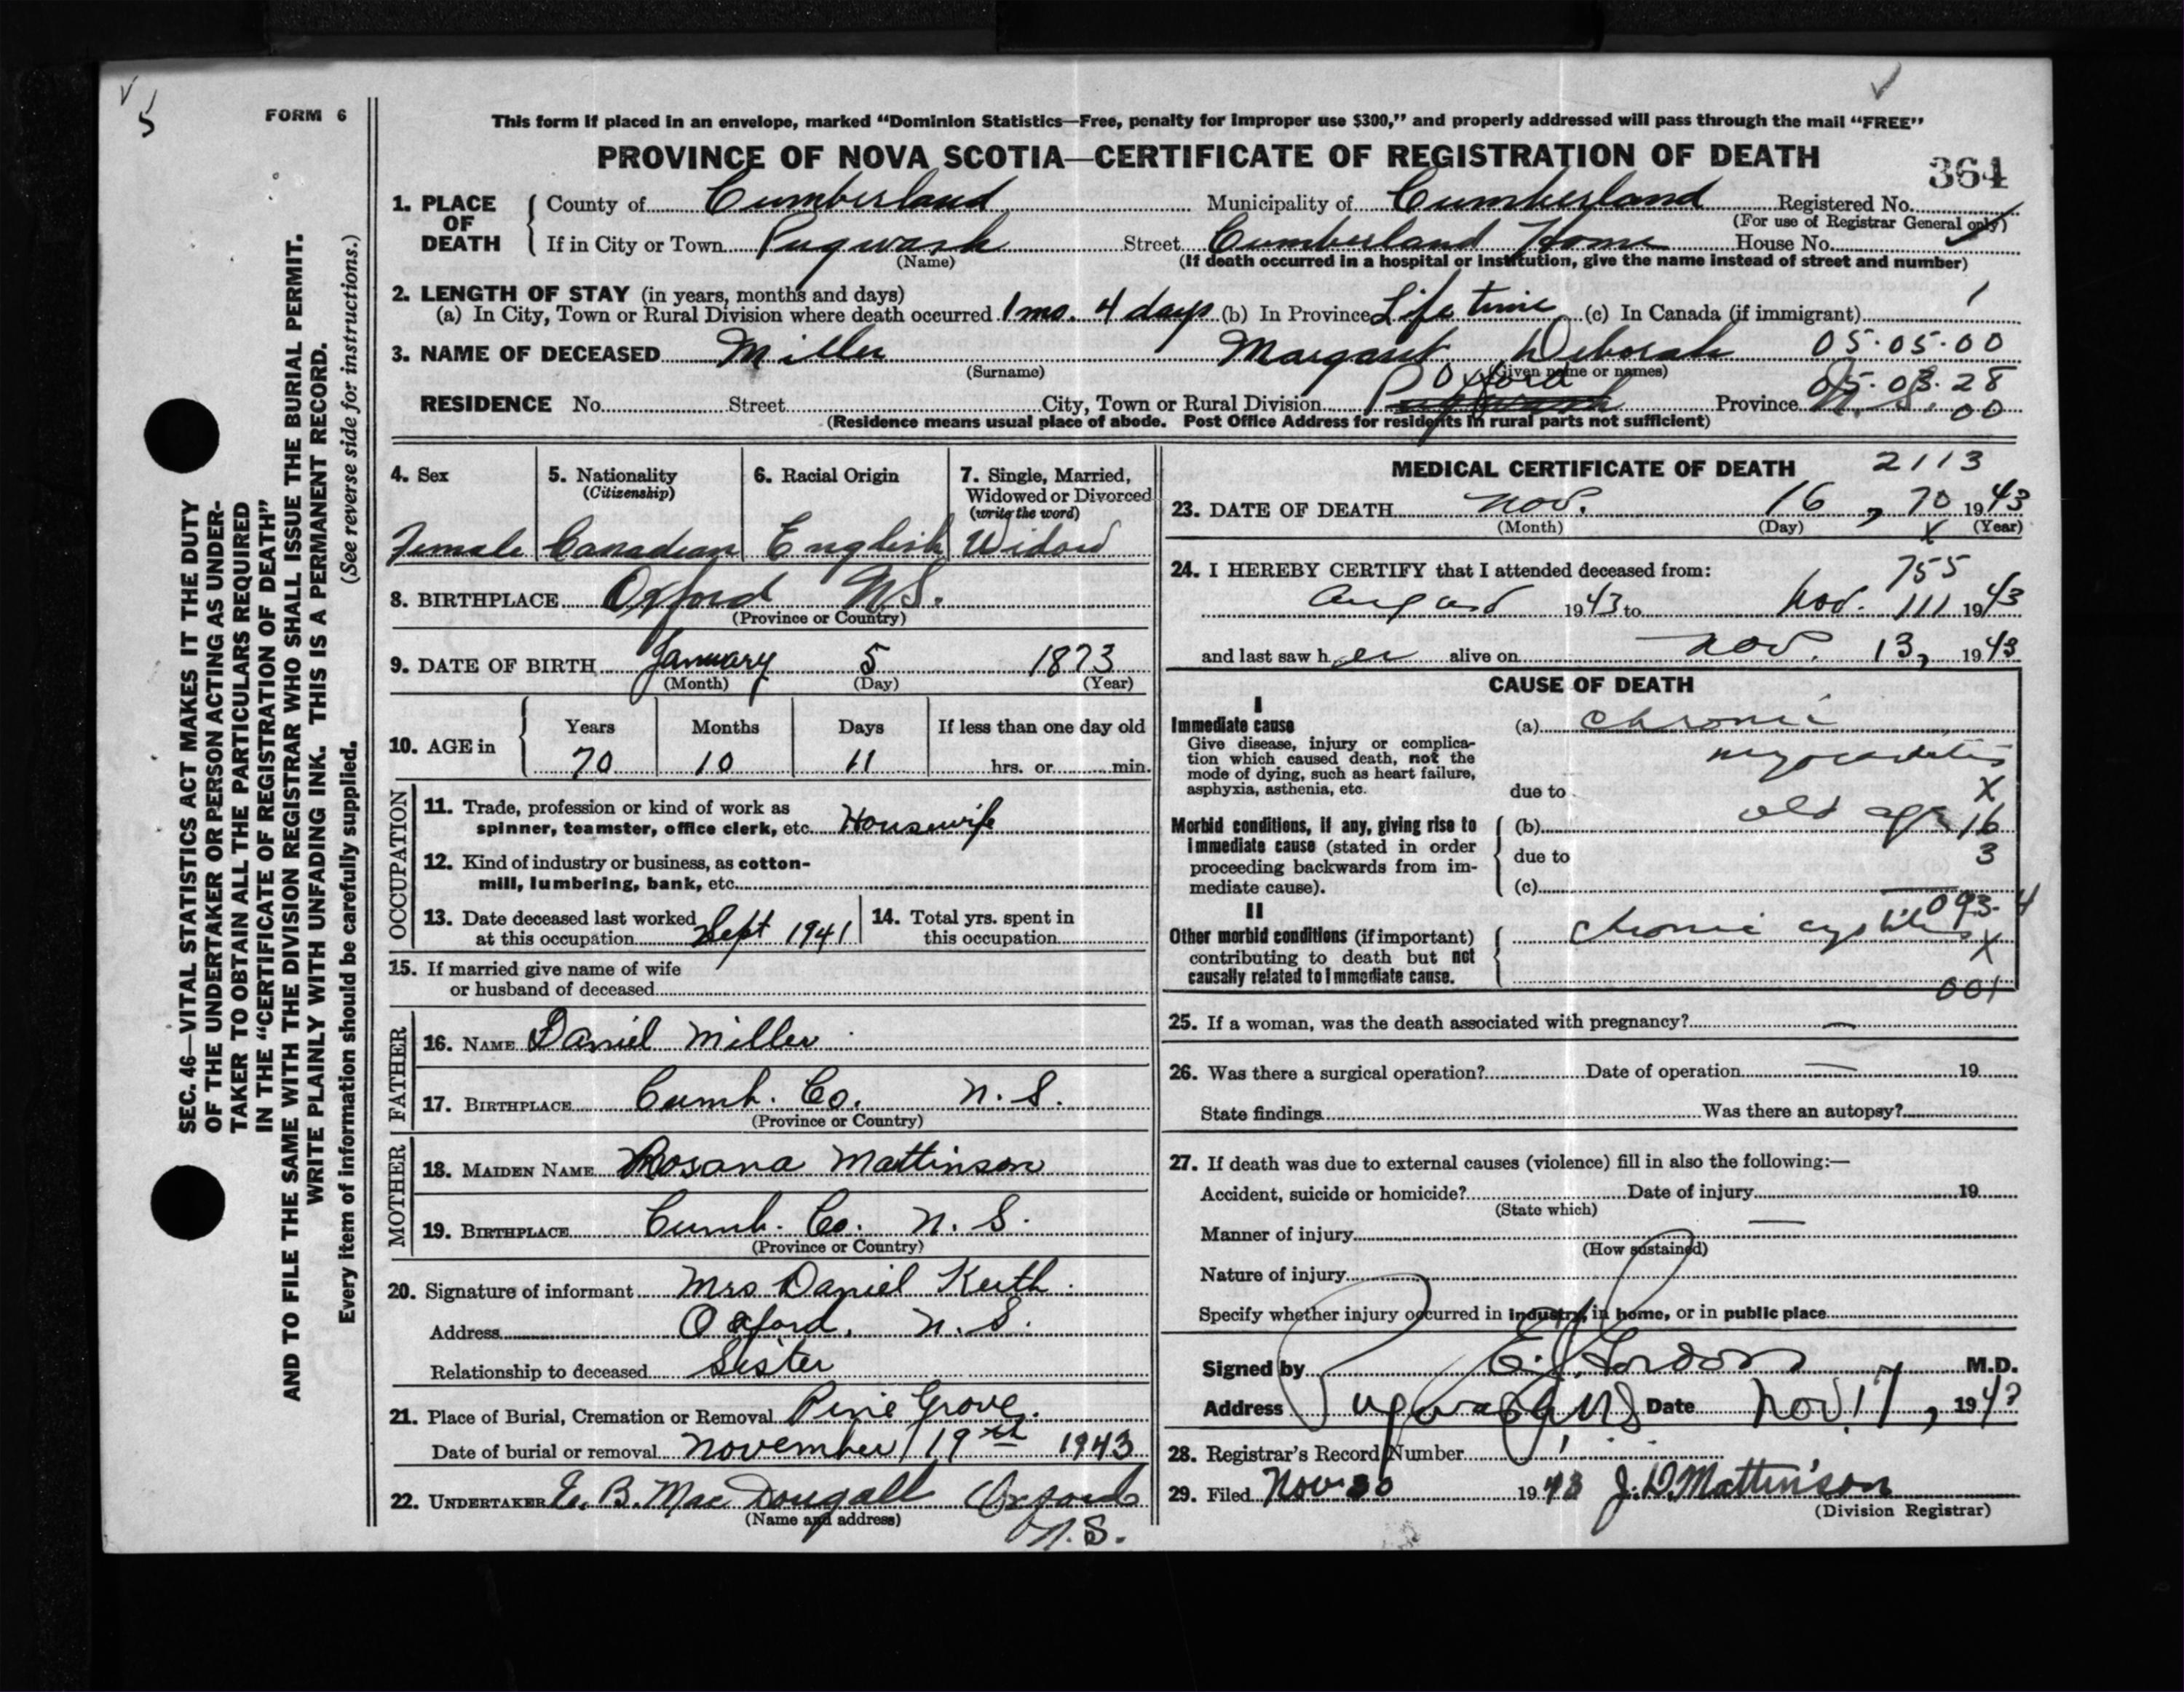 FORM 6
This form if placed in an envelope, marked “Dominion Statistics—Free, penalty for improper use $300,” and properly addressed will pass through the mail “FREE”
PROVINCE OF NOVA SCOTIA—CERTIFICATE OF REGISTRATION OF DEATH
364
1. PLACE OF DEATH
County of Cumberland Municipality of Cumberland Registered No.
(For use of Registrar General only)
If in City or Town Pugwash Street Cumberland Home House No.
(Name) (If death occurred in a hospital or institution, give the name instead of street and number)
2. LENGTH OF STAY (in years, months and days)
(a) In City, Town or Rural Division where death occurred 1 mo. 4 days (b) In Province Life time (c) In Canada (if immigrant)
3. NAME OF DECEASED Miller Margaret Deborah 05.05.00
(Surname) (Given name or names)
Oxford 05.03.28
RESIDENCE No. Street City, Town or Rural Division Pugwash Province N.S. 00
(Residence means usual place of abode. Post Office Address for residents in rural parts not sufficient)
4. Sex 5. Nationality (Citizenship) 6. Racial Origin 7. Single, Married, Widowed or Divorced (write the word)
Female Canadian English Widow
8. BIRTHPLACE Oxford N.S.
(Province or Country)
9. DATE OF BIRTH January 5 1873
(Month) (Day) (Year)
10. AGE in Years Months Days If less than one day old
70 10 11 hrs. or min.
OCCUPATION
11. Trade, profession or kind of work as
spinner, teamster, office clerk, etc. Housewife
12. Kind of industry or business, as cotton-
mill, lumbering, bank, etc.
13. Date deceased last worked at this occupation Sept 1941 14. Total yrs. spent in this occupation
15. If married give name of wife
or husband of deceased
FATHER
16. NAME Daniel Miller
17. BIRTHPLACE Cumb. Co. N.S.
(Province or Country)
MOTHER
18. MAIDEN NAME Rosana Mattinson
19. BIRTHPLACE Cumb. Co. N.S.
(Province or Country)
20. Signature of informant Mrs Daniel Keith
Address Oxford, N.S.
Relationship to deceased Sister
21. Place of Burial, Cremation or Removal Pine Grove.
Date of burial or removal November 19th 1943
22. UNDERTAKER E. B. MacDougall Oxford
(Name and address)
N.S.
MEDICAL CERTIFICATE OF DEATH 2113
23. DATE OF DEATH Nov. 16, 70 1943
(Month) (Day) X (Year)
24. I HEREBY CERTIFY that I attended deceased from: 755
August 1943 to Nov. 1943
and last saw her alive on Nov. 13, 1943
CAUSE OF DEATH
I
Immediate cause (a) Chronic
Give disease, injury or complica-
tion which caused death, not the
mode of dying, such as heart failure,
asphyxia, asthenia, etc.
myocarditis
due to X
Morbid conditions, if any, giving rise to
immediate cause (stated in order
proceeding backwards from im-
mediate cause).
(b) old age 16
due to 3
(c)
093.4
II
Other morbid conditions (if important)
contributing to death but not
causally related to immediate cause.
chronic cystitis X
001
25. If a woman, was the death associated with pregnancy? —
26. Was there a surgical operation? Date of operation — 19
State findings Was there an autopsy?
27. If death was due to external causes (violence) fill in also the following:—
Accident, suicide or homicide? Date of injury 19
(State which)
Manner of injury —
(How sustained)
Nature of injury
Specify whether injury occurred in industry, in home, or in public place
Signed by Gordon M.D.
Address Pugwash, NS Date Nov. 17, 1943
28. Registrar’s Record Number
29. Filed Nov 30 1943 J. D. Mattinson
(Division Registrar)
SEC. 46—VITAL STATISTICS ACT MAKES IT THE DUTY
OF THE UNDERTAKER OR PERSON ACTING AS UNDER-
TAKER TO OBTAIN ALL THE PARTICULARS REQUIRED
IN THE “CERTIFICATE OF REGISTRATION OF DEATH”
AND TO FILE THE SAME WITH THE DIVISION REGISTRAR WHO SHALL ISSUE THE BURIAL PERMIT.
WRITE PLAINLY WITH UNFADING INK. THIS IS A PERMANENT RECORD.
Every item of information should be carefully supplied. (See reverse side for instructions.)